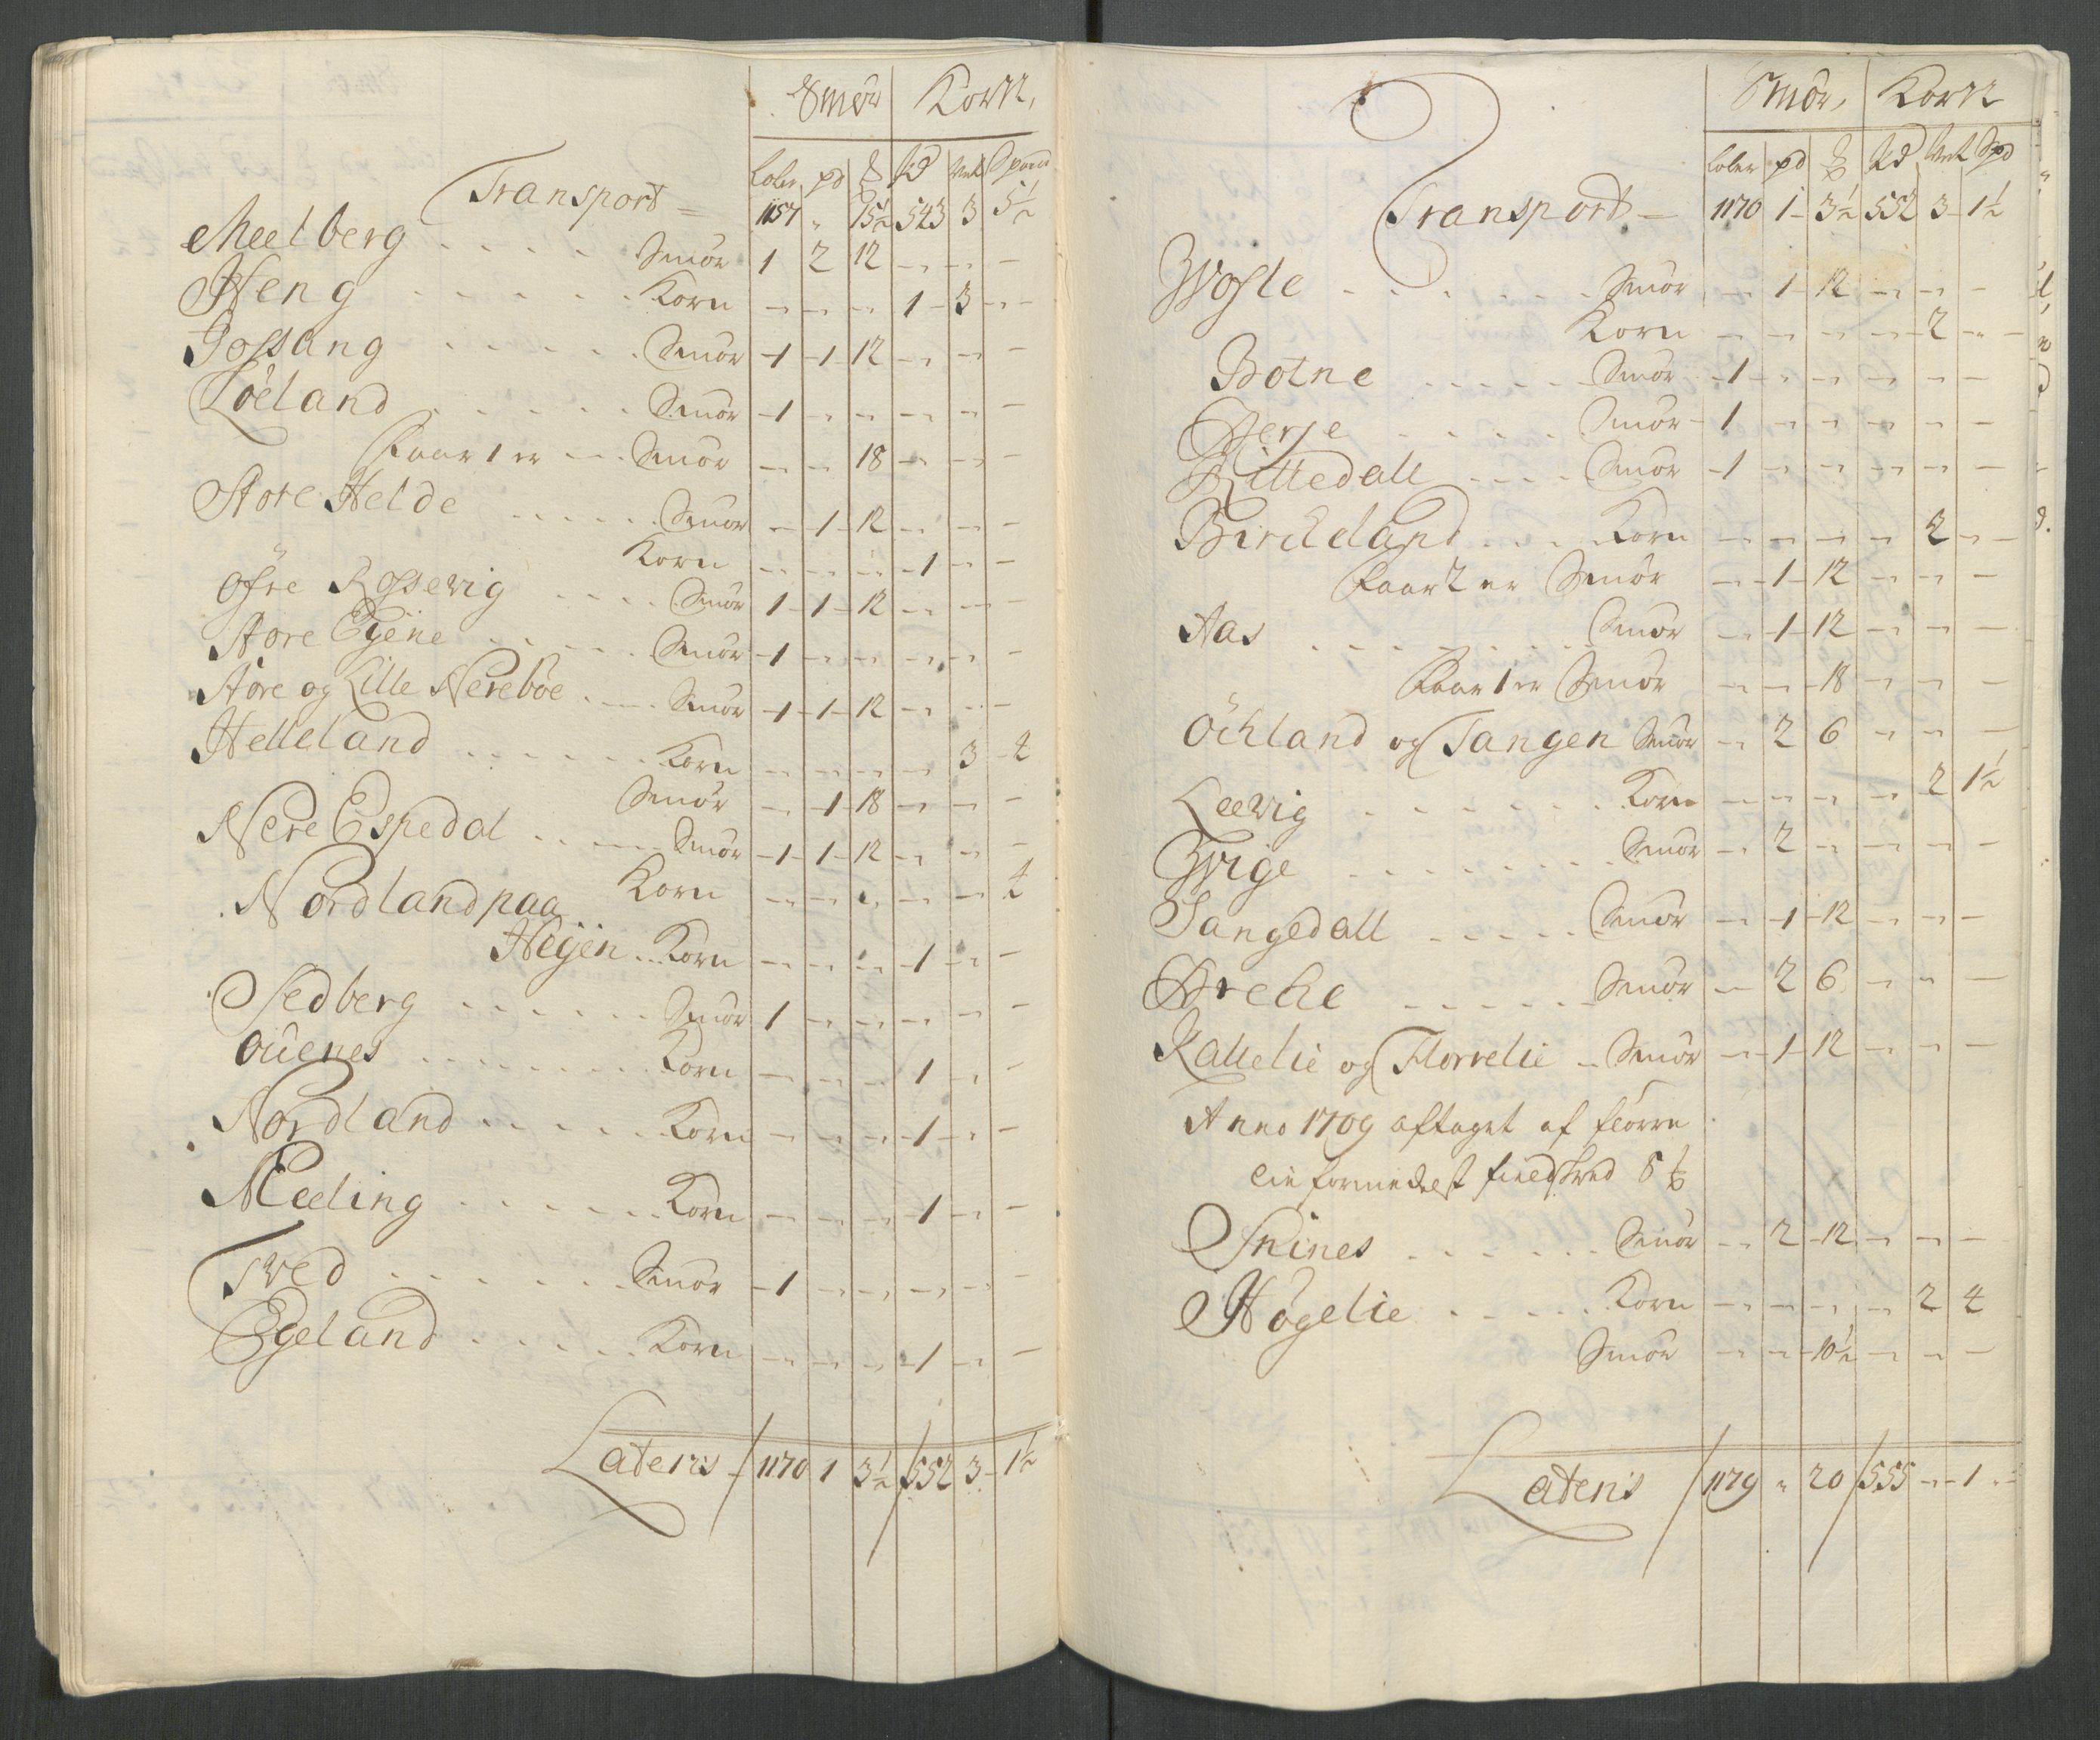 Smör Korn,
Løber pd ℔ Pd Vet Spand
Transport = 1157 " 15½ 543 3 5½
Meelberg Smör 1 2 12 - - -
Heng Korn - - - 1 3 -
Jossang Smör 1 1 12 - - -
Löeland Smör 1 - - - - -
Faar 1 er Smör - - 18 - - -
Store Helde Smör - 1 12 - - -
Korn - - - 1 - -
Øfre Rossevig Smör 1 1 12 - - -
Store Egene Smör 1 - - - - -
Store og Lille Nereböe Smör 1 1 12 - - -
Helleland Korn - - - - 3 4
Smör - 1 18 - - -
Nere Espedal Smör 1 1 12 - - -
Korn - - - - - 4
Nordland paa
Heyen Korn - - - 1 - -
Sedberg Smör 1 - - - - -
Ouenes Korn - - - 1 - -
Nordland Korn - - - 1 - -
Meeling Korn - - - 1 - -
Tved Smör 1 - - - - -
Egeland Korn - - - 1 - -
Lateris 1170 1 3½ 552 3 1½
Smör, Korn
Løber pd ℔ Pd Vet Spd
Transport 1170 1 3½ 552 3 1½
Wosle Smör - 1 12 - - -
Korn - - - - 2 -
Botne Smör 1 - - - - -
Berje Smör 1 - - - - -
Kittedall Smör 1 - - - - -
Birckeland Korn - - - - 2 -
Faar 2 er Smör - 1 12 - - -
Aas Smör - 1 12 - - -
Faar 1 er Smör - - 18 - - -
Öchland og Tangen Smör - 2 6 - - -
Leevig Korn - - - - 2 1½
Wige Smör - 2 - - - -
Sangedall Smör - 1 12 - - -
Breche Smör - 2 6 - - -
Kallelie og Florrelie Smör - 1 12 - - -
Anno 1709 aftaget af florre
lie formedelst 6 ℔
Snines Smör - 2 12 - - -
Högelie Korn - - - - 2 4
Smör - - 10½ - - -
Lateris 1179 " 20 555 - 1 -